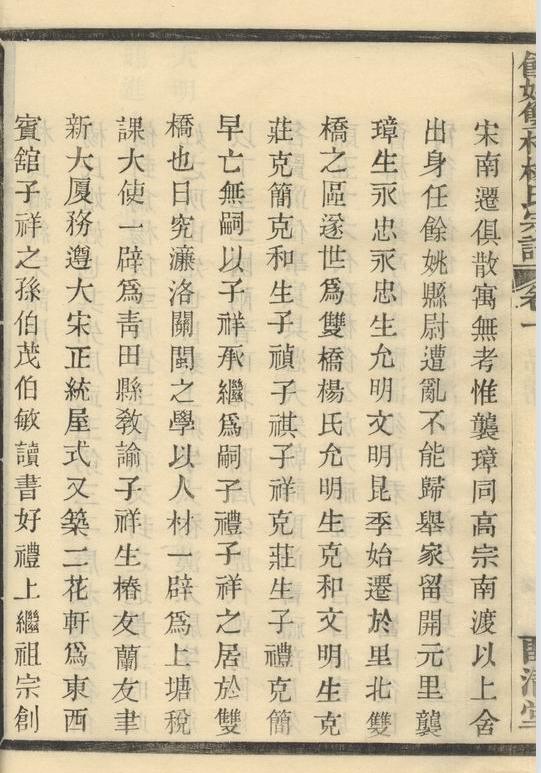 宋南遷俱散寓無考惟龔璋同高宗南渡以上舍
出身任餘姚縣尉遭亂不能歸舉家留開元里龔
璋生永忠永忠生允明文明昆季始遷於里北雙
橋之區遂世爲雙橋楊氏允明生克和文明生克
莊克簡克和生子禎子祺子祥克莊生子禮克簡
早亡無嗣以子祥承繼爲嗣子禮子祥之居於雙
橋也日究濂洛關閩之學以人材一辟爲上塘稅
課大使一辟爲青田縣敎諭子祥生椿友蘭友聿
新大厦務遵大宋正統屋式又築二花軒爲東西
賓舘子祥之孫伯茂伯敏讀書好禮上繼祖宗創
楊氏宗譜 卷一